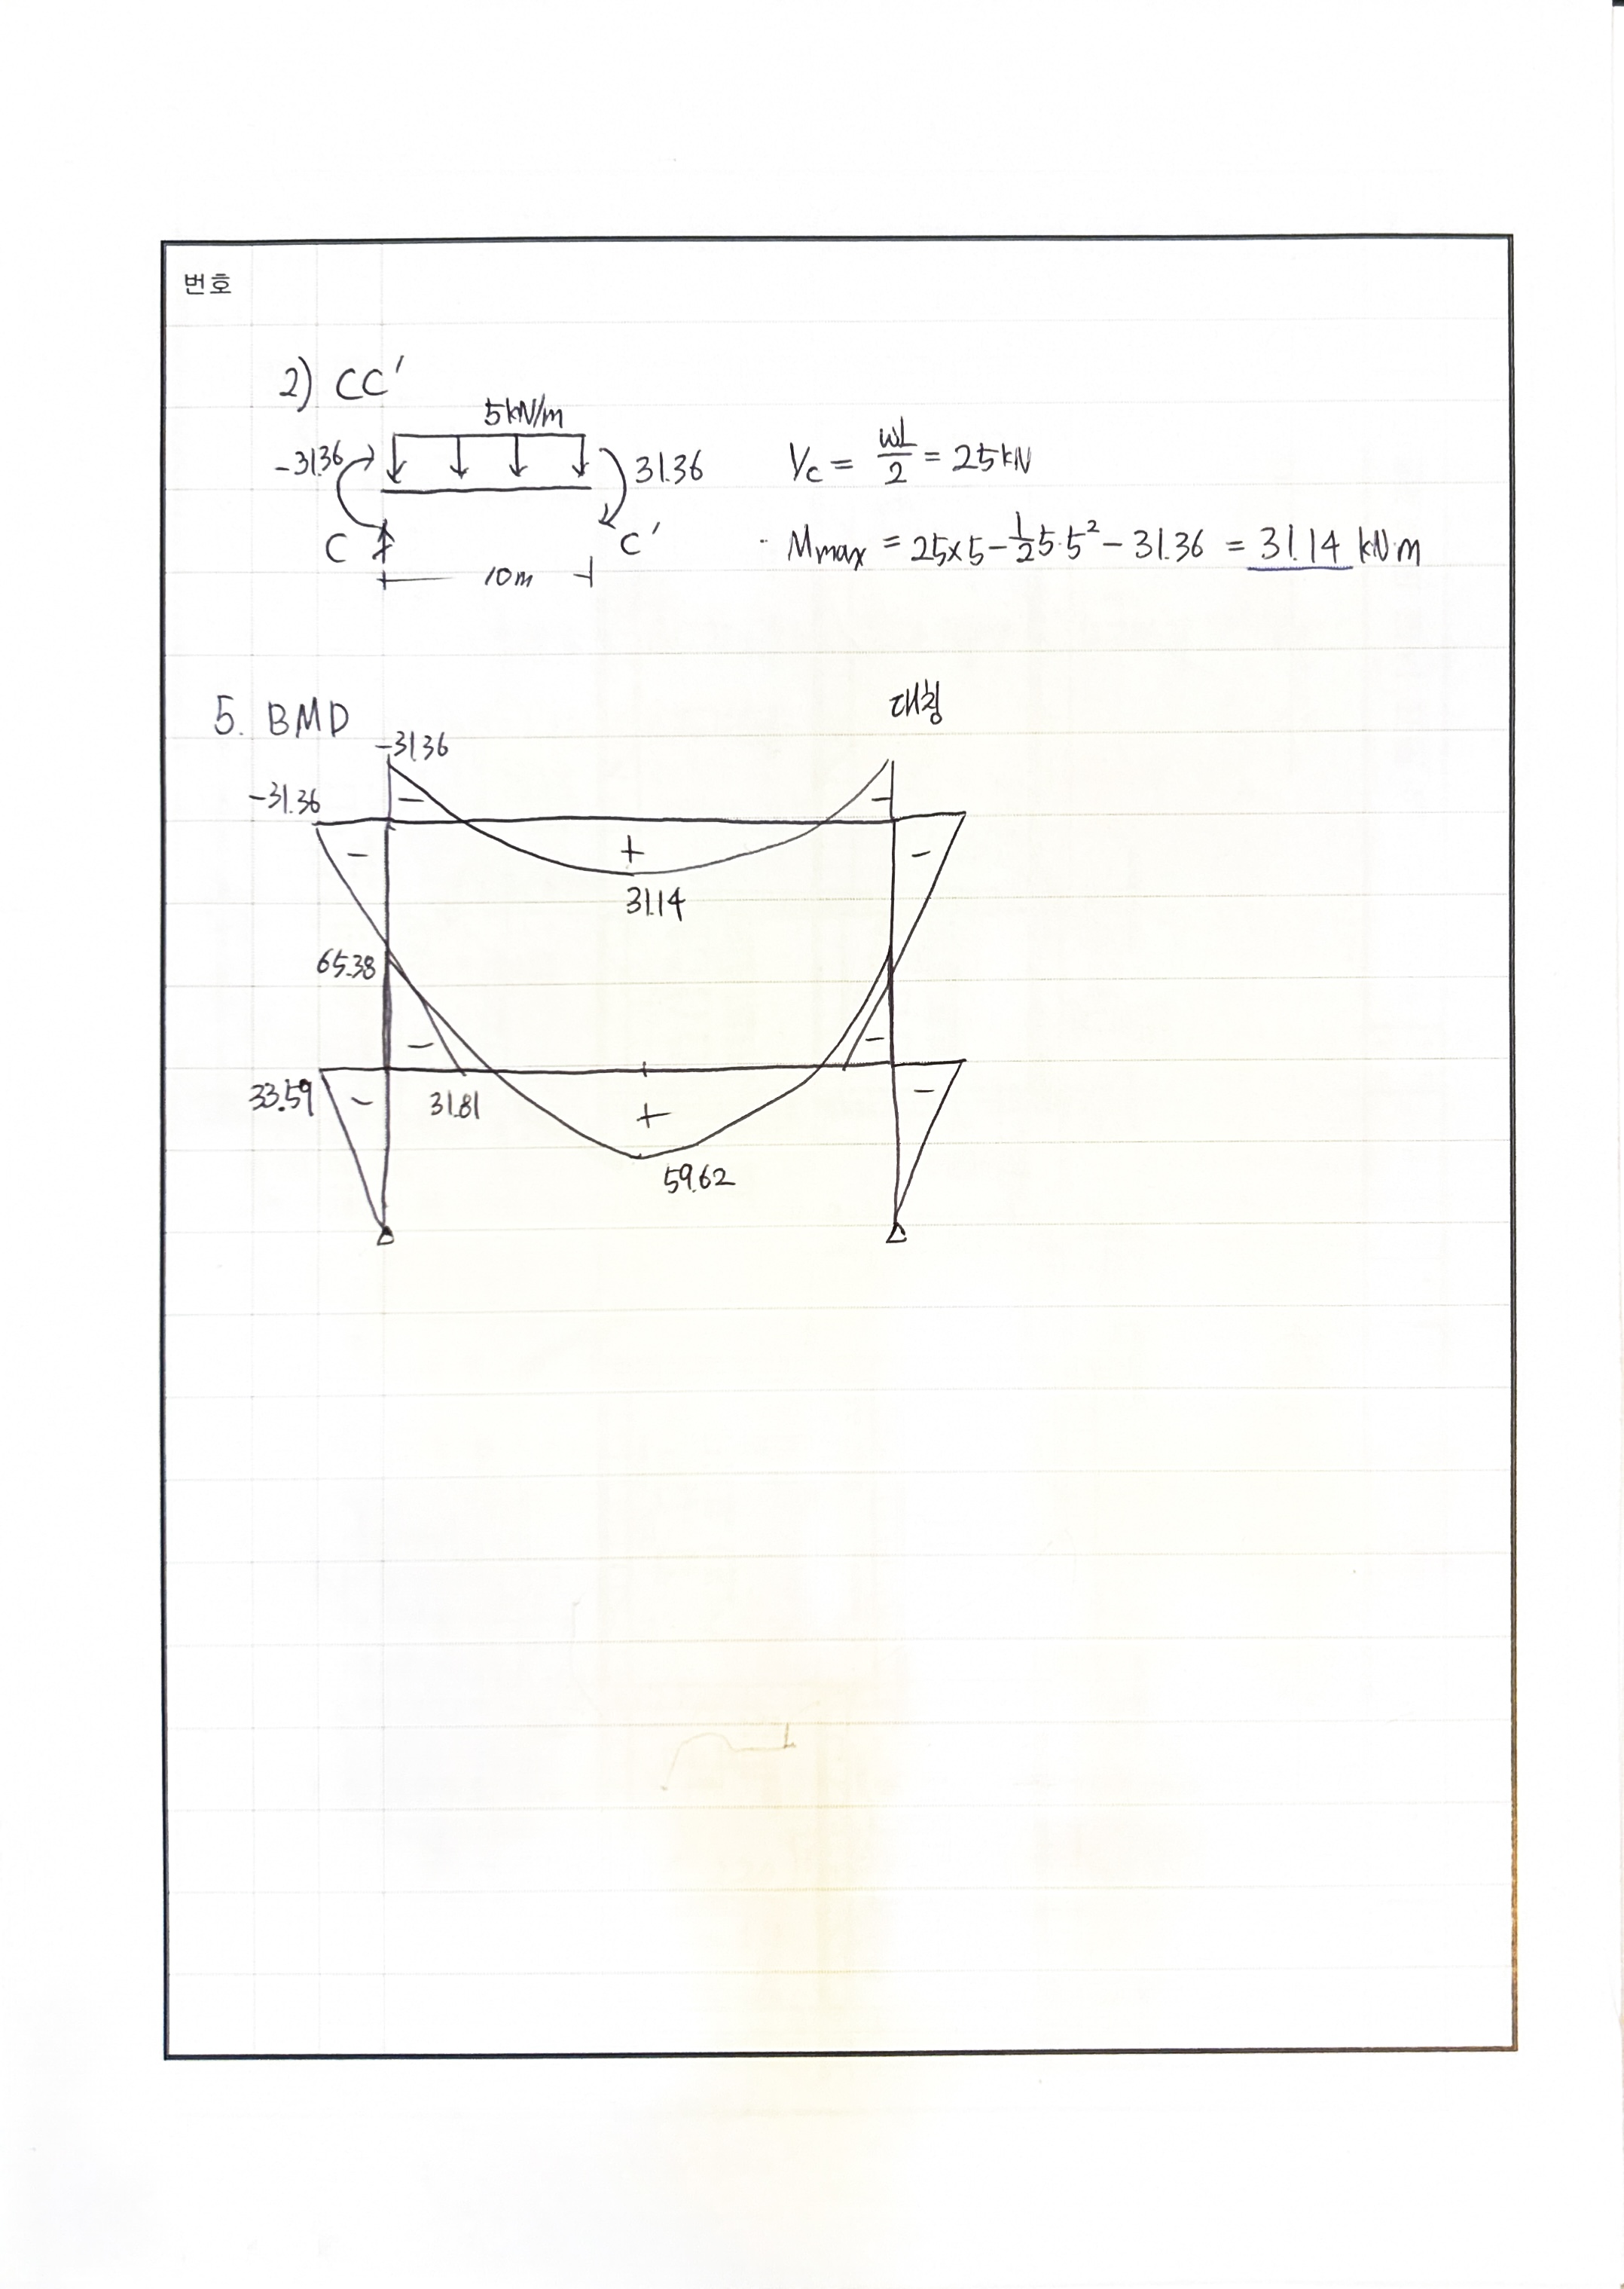 번호
2) CC'
5kN/m
-31.36
31.36
C
C'
10m
Yc = wL/2 = 25kN
· Mmax = 25×5-1/2 5·5² - 31.36 = 31.14 kN·m
5. BMD
대칭
-31.36
-31.36
-
-
-
+
-
31.14
65.38
-
-
33.59
-
31.81
+
-
59.62